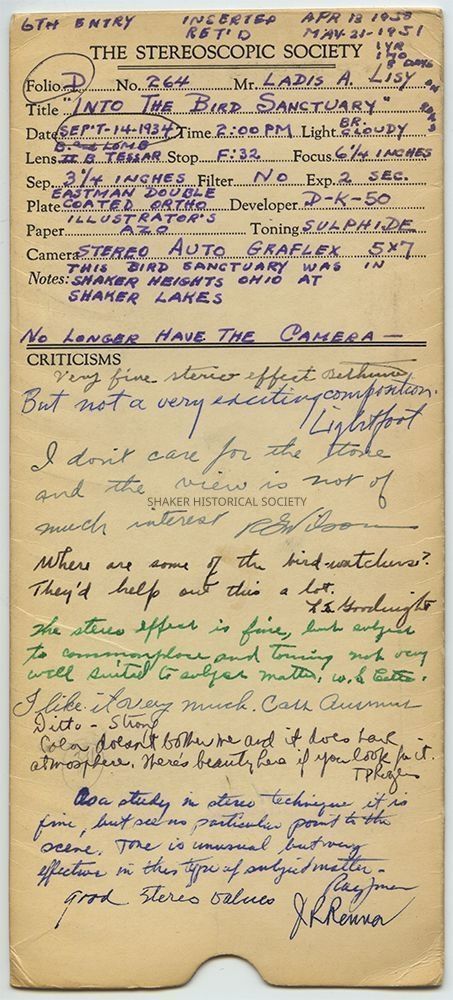 6TH ENTRY INSERTED APR 18 1950
RET'D MAY-21-1951
1 YR
1 MO
THE STEREOSCOPIC SOCIETY
Folio D No. 264 Mr. LADIS A. LISY
Title "INTO THE BIRD SANCTUARY"
Date SEP'T-14-1934 Time 2:00 PM Light BR. CLOUDY
B and LOMB
Lens II B TESSAR Stop F:32 Focus 6 1/4 INCHES
Sep. 3 1/4 INCHES Filter NO Exp. 2 SEC.
EASTMAN DOUBLE
Plate COATED ORTHO Developer D-K-50
ILLUSTRATOR'S
Paper AZO Toning SULPHIDE
Camera STEREO AUTO GRAFLEX 5x7
THIS BIRD SANCTUARY WAS IN
Notes: SHAKER HEIGHTS OHIO AT
SHAKER LAKES
NO LONGER HAVE THE CAMERA —
CRITICISMS
Very fine stereo effect Bethune
But not a very exciting composition.
Lightfoot
I don't care for the tone
and the view is not of
SHAKER HISTORICAL SOCIETY
much interest R G Wilson
Where are some of the bird-watchers?
They'd help out this a lot.
L E Goodnight
The stereo effect is fine, but subject
to commonplace and toning not very
well suited to subject matter. W. L
I like it very much. Cash
Ditto - Strong
Color doesn't bother me and it does lend
atmosphere. There's beauty here if you look for it.
T P Rogers
As a study in stereo technique it is
fine, but see no particular point to the
scene. Tone is unusual but very
effective in this type of subject matter -
good stereo values
J R Renner